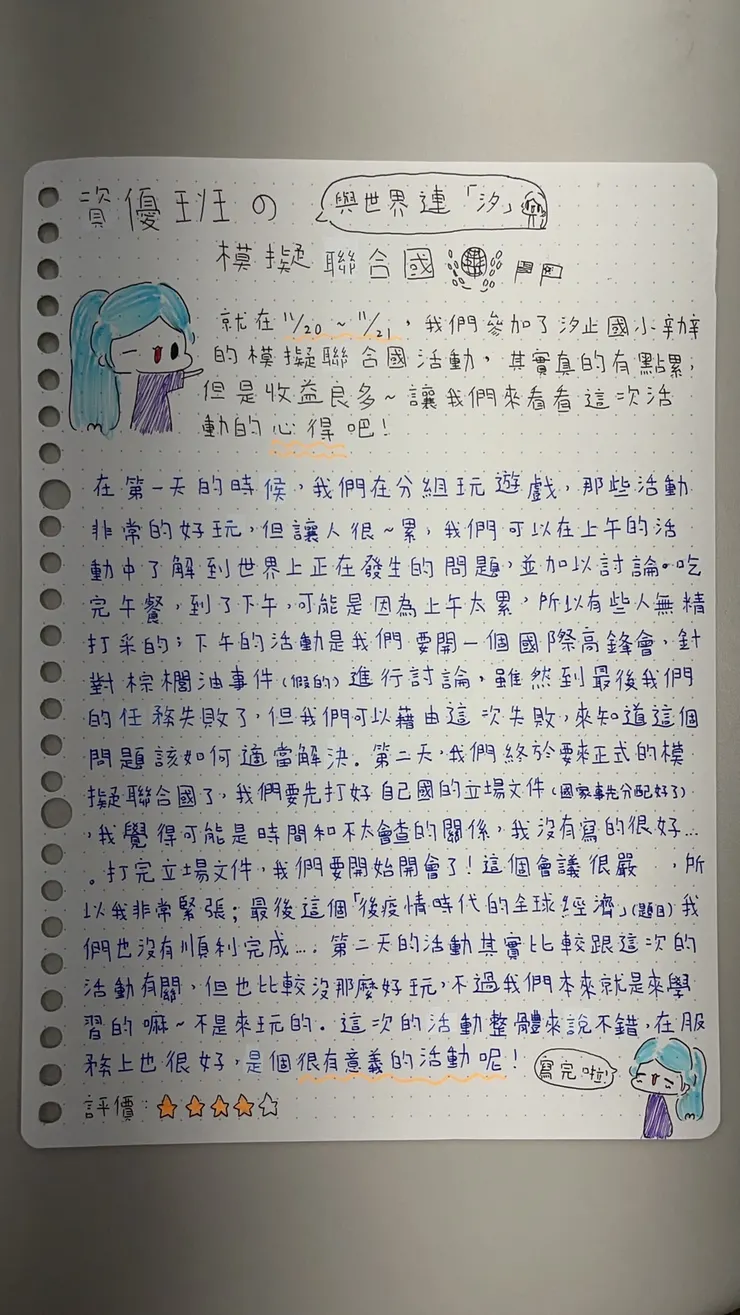 資優班の
與世界連「汐」
模擬聯合國
就在11/20~11/21，我們參加了汐止國小辦
的模擬聯合國活動，其實真的有點累，
但是收益良多~讓我們來看看這次活
動的心得吧！
在第一天的時候，我們在分組玩遊戲，那些活動
非常的好玩，但讓人很~累，我們可以在上午的活
動中了解到世界上正在發生的問題，並加以討論。吃
完午餐，到了下午，可能是因為上午太累，所以有些人無精
打采的；下午的活動是我們要開一個國際高鋒會，針
對棕櫚油事件(假的)進行討論，雖然到最後我們
的任務失敗了，但我們可以藉由這次失敗，來知道這個
問題該如何適當解決。第二天，我們終於要來正式的模
擬聯合國了，我們要先打好自己國的立場文件(國家事先分配好了)
，我覺得可能是時間和不太會查的關係，我沒有寫的很好...
。打完立場文件，我們要開始開會了！這個會議很嚴，所
以我非常緊張；最後這個「後疫情時代的全球經濟」(題目)我
們也沒有順利完成...。第二天的活動其實比較跟這次的
活動有關，但也比較沒那麼好玩，不過我們本來就是來學
習的嘛~不是來玩的。這次的活動整體來說不錯，在服
務上也很好，是個很有意義的活動呢！
寫完啦!
評價：★★★★☆